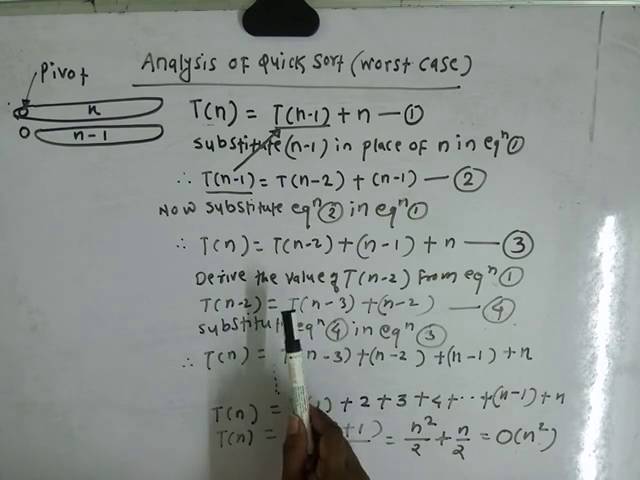 Analysis of Quick Sort (Worst Case)
Pivot
n
0 n-1
T(n) = T(n-1) + n — ①
Substitute (n-1) in place of n in eqⁿ ①
∴ T(n-1) = T(n-2) + (n-1) — ②
Now substitute eqⁿ ② in eqⁿ ①
∴ T(n) = T(n-2) + (n-1) + n — ③
Derive the value of T(n-2) from eqⁿ ①
T(n-2) = T(n-3) + (n-2) — ④
Substitute eqⁿ ④ in eqⁿ ③
∴ T(n) = n-3) + (n-2) + (n-1) + n
T(n) = 1) + 2 + 3 + 4 + ·· + (n-1) + n
T(n) = +1) = n²/2 + n/2 = O(n²)